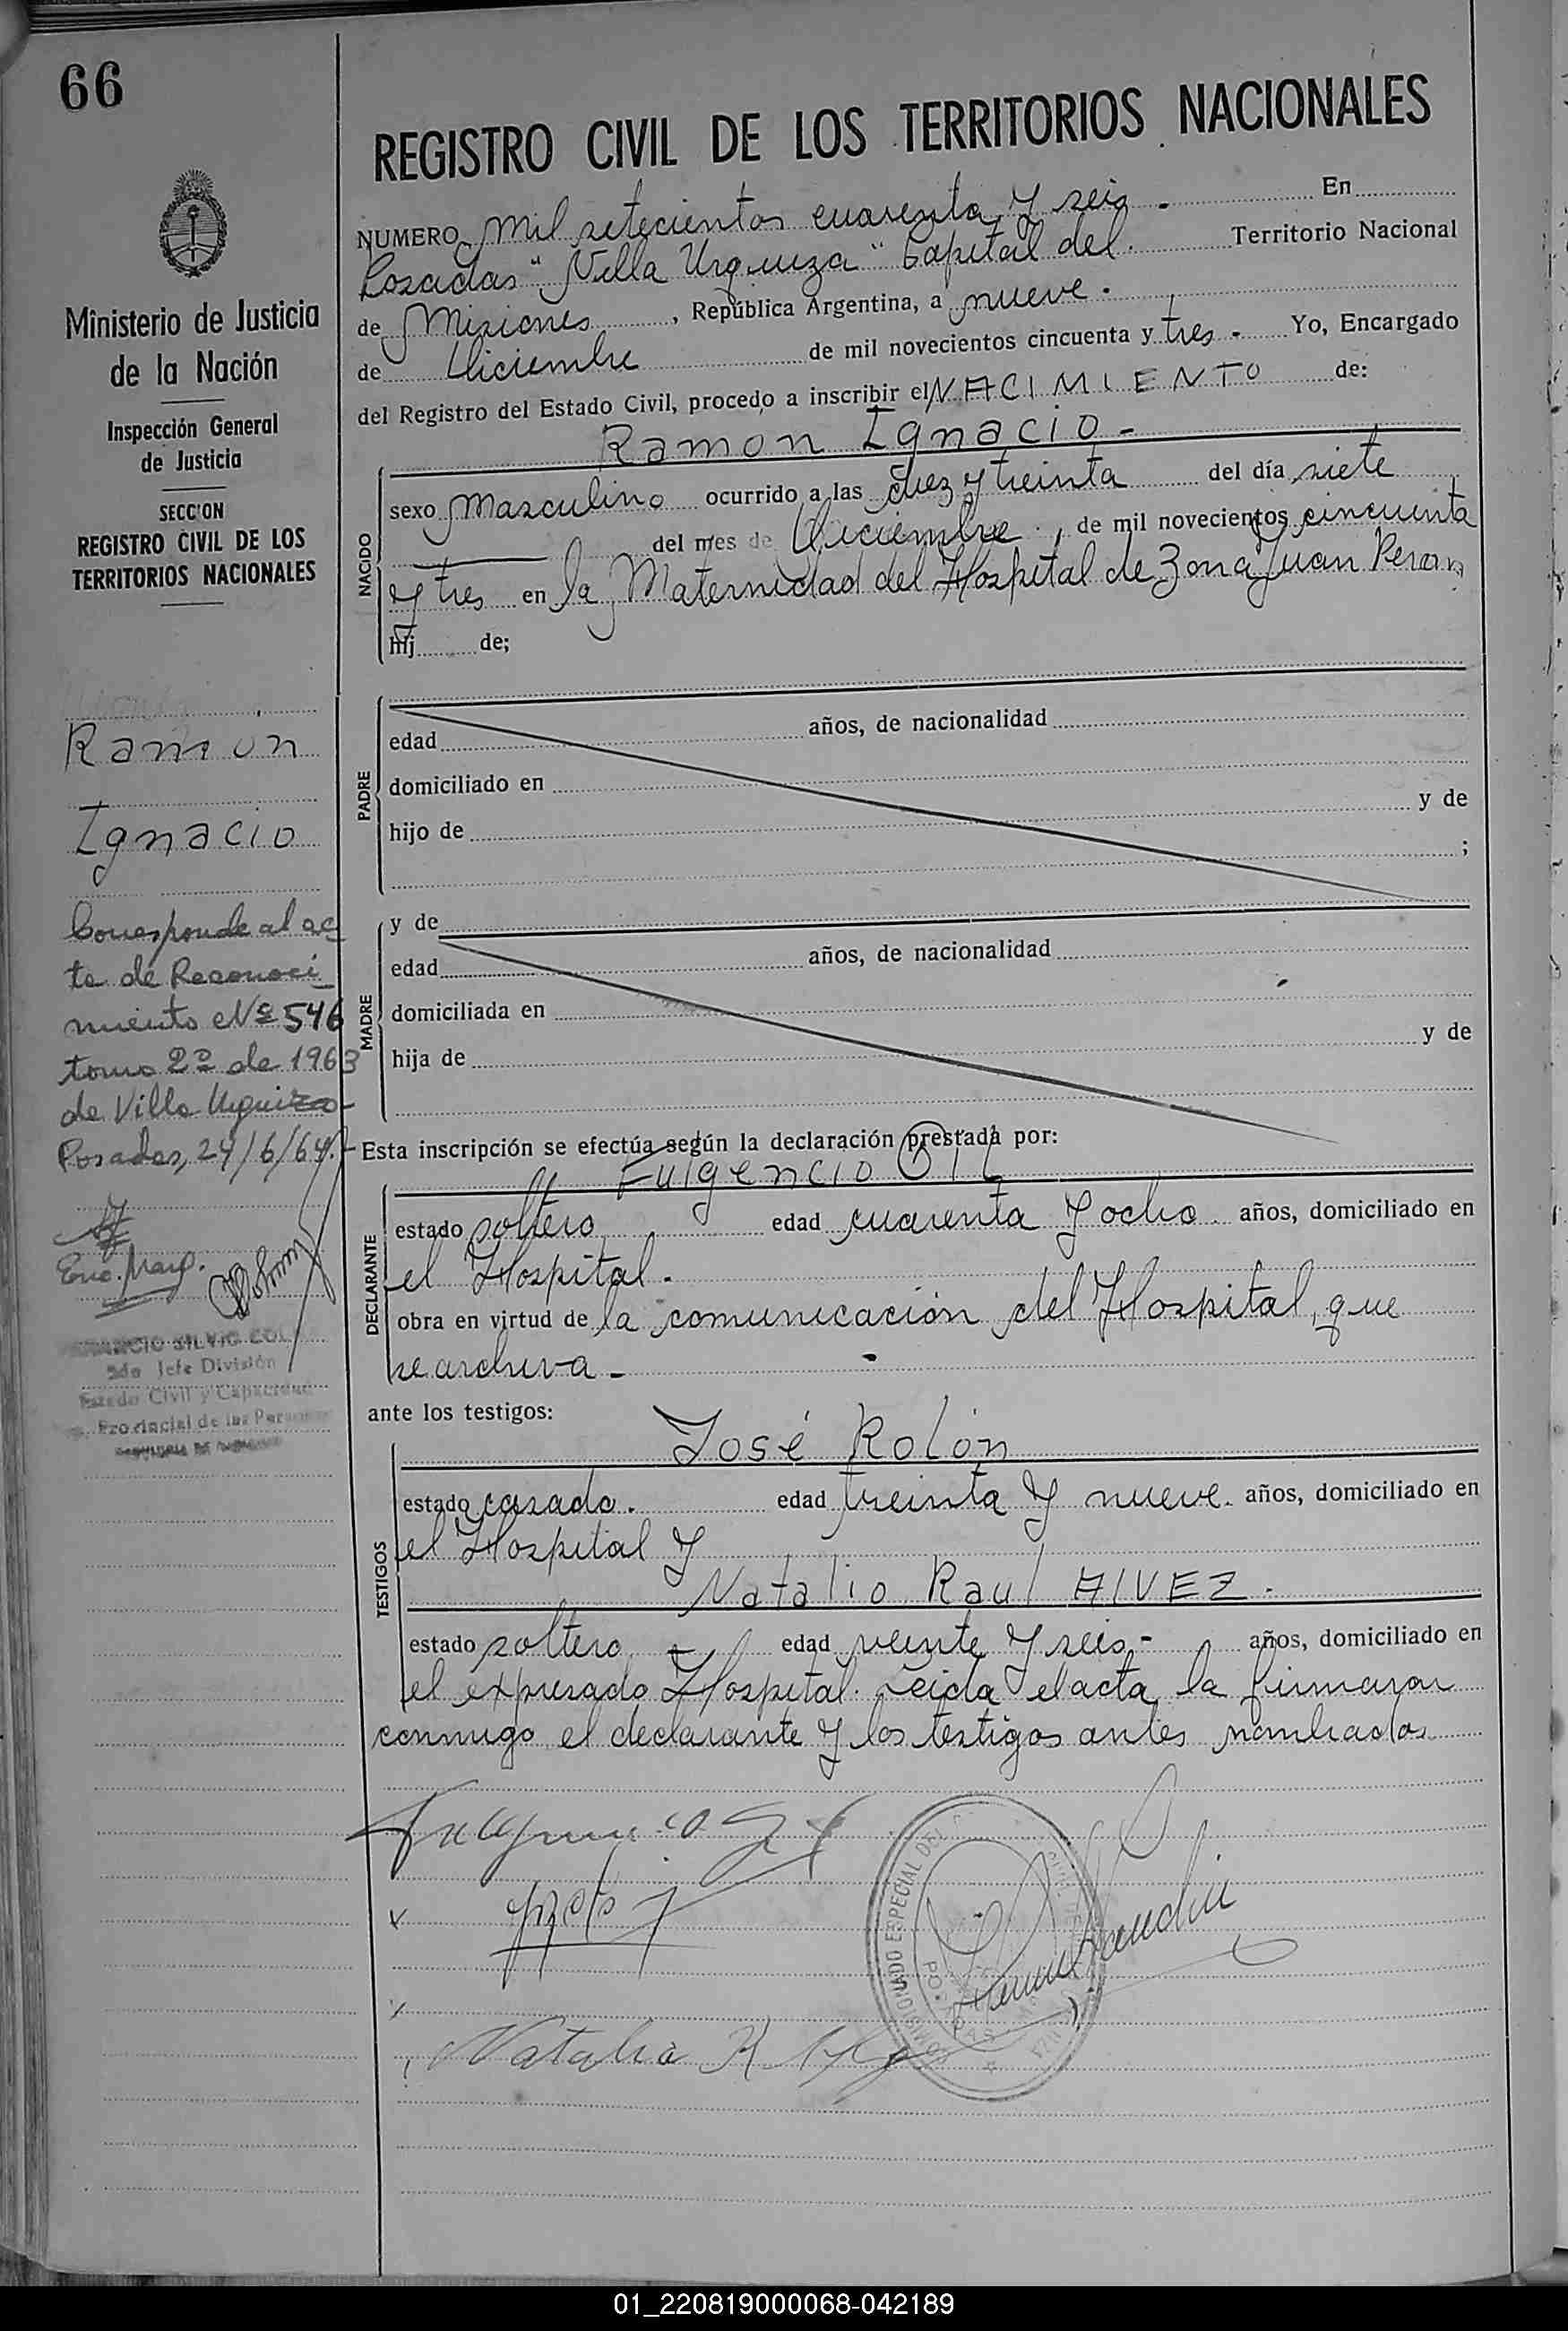 66
Ministerio de Justicia
de la Nación
Inspección General
de Justicia
SECCION
REGISTRO CIVIL DE LOS
TERRITORIOS NACIONALES
Ramon
Ignacio
Corresponde al ac
ta de Reconoci
miento Nº 546
tomo 2º de 1963
de Villa Urquiza
Posadas, 24/6/64.
Enc. Marg.
2do Jefe División
Estado Civil y Capacidad
Provincial de las Personas
REGISTRO CIVIL DE LOS TERRITORIOS NACIONALES
NUMERO Mil setecientos cuarenta y seis - En
Posadas "Villa Urquiza" Capital del Territorio Nacional
de Misiones, República Argentina, a nueve.
de Diciembre de mil novecientos cincuenta y tres - Yo, Encargado
del Registro del Estado Civil, procedo a inscribir el NACIMIENTO de:
Ramón Ignacio -
NACIDO
sexo Masculino ocurrido a las diez y treinta del día siete
del mes de Diciembre, de mil novecientos cincuenta
y tres en la Maternidad del Hospital de Zona Juan Peron
hij de;
PADRE
edad años, de nacionalidad
domiciliado en
hijo de y de
;
MADRE
y de
edad años, de nacionalidad
domiciliada en
hija de y de
Esta inscripción se efectúa según la declaración prestada por:
Fulgencio Gil
DECLARANTE
estado soltero edad cuarenta y ocho años, domiciliado en
el Hospital.
obra en virtud de la comunicación del Hospital, que
se archiva -
ante los testigos:
José Rolón
TESTIGOS
estado casado. edad treinta y nueve. años, domiciliado en
el Hospital y
Natalio Raul AlVEZ.
estado soltero edad veinte y seis.- años, domiciliado en
el expresado Hospital. Leida el acta, la firmaron
conmigo el declarante y los testigos antes nombrados.
Natalio R
01_220819000068-042189